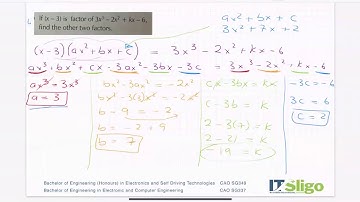 If (x – 3) is factor of 3x³ – 2x² + kx – 6,
find the other two factors.
ax² + bx + c
3x² + 7x + 2
(x-3)(ax² + bx + c) = 3x³ - 2x² + kx - 6
ax³ + bx² + cx - 3ax² - 3bx - 3c = 3x³ - 2x² + kx - 6
ax³ = 3x³
a = 3
bx² - 3ax² = -2x²
bx² - 3(3)x² = -2x²
b - 9 = -2
b = -2 + 9
b = 7
cx - 3bx = kx
c - 3b = k
2 - 3(7) = k
2 - 21 = k
-19 = k
-3c = -6
3c = 6
c = 2
Bachelor of Engineering (Honours) in Electronics and Self Driving Technologies CAO SG349
Bachelor of Engineering in Electronic and Computer Engineering CAO SG337
IT Sligo